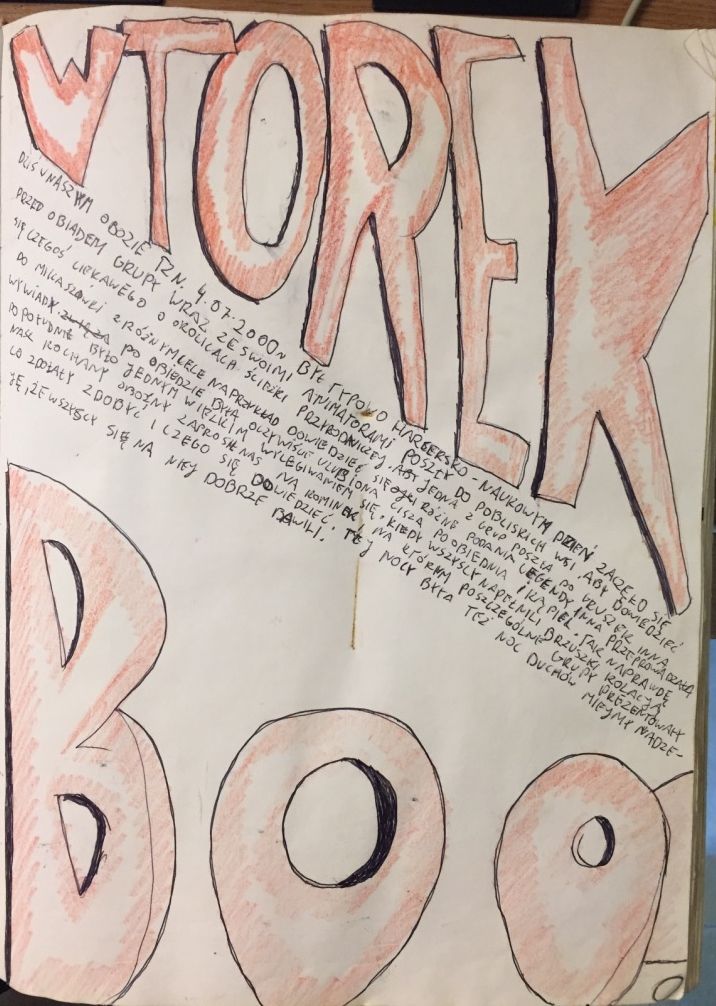 WTOREK
DZIŚ W NASZYM OBOZIE TZN. 4.07.2000r BYŁ TYPOWO HARCERSKO - NAUKOWYM DZIEŃ ZACZĘŁO SIĘ
PRZED OBIADEM GRUPY WRAZ ZE SWOIMI ANIMATORAMI POSZŁY DO POBLISKICH WSI, ABY DOWIEDZIEĆ
SIĘ CZEGOŚ CIEKAWEGO O OKOLICACH ŚCIEŻKI PRZYRODNICZEJ. ABY JEDNA Z GRUP POSZŁA DO INNA
DO MIKASZÓWKI Z RÓŻNYM CELE NAPRZYKŁAD DOWIEDZIEĆ SIĘ RÓŻNE PODANIA LEGENDY INNA PRZEPROWADZAŁA
WYWIADY. PO OBIEDZIE BYŁA OCZYWIŚCIE ULUBIONA CISZA POOBIEDNIA I KĄPIEL. TAK NAPRAWDĘ
POPOŁUDNIE BYŁO JEDNYM WIELKIM WYLEGIWANIEM SIĘ, KIEDY WSZYSCY NAPEŁNILI BRZUSZKI KOLACJĄ
NASZ KOCHANY OBOŹNY ZAPROSIŁ NAS NA KOMINEK, NA KTÓRYM POSZCZEGÓLNE GRUPY PREZENTOWAŁY
CO ZDOŁAŁY ZDOBYĆ I CZEGO SIĘ DOWIEDZIEĆ. TEJ NOCY BYŁA TEŻ NOC DUCHÓW MIEJMY NADZE-
JĘ, ŻE WSZYSCY SIĘ NA NIEJ DOBRZE BAWILI.
BOO